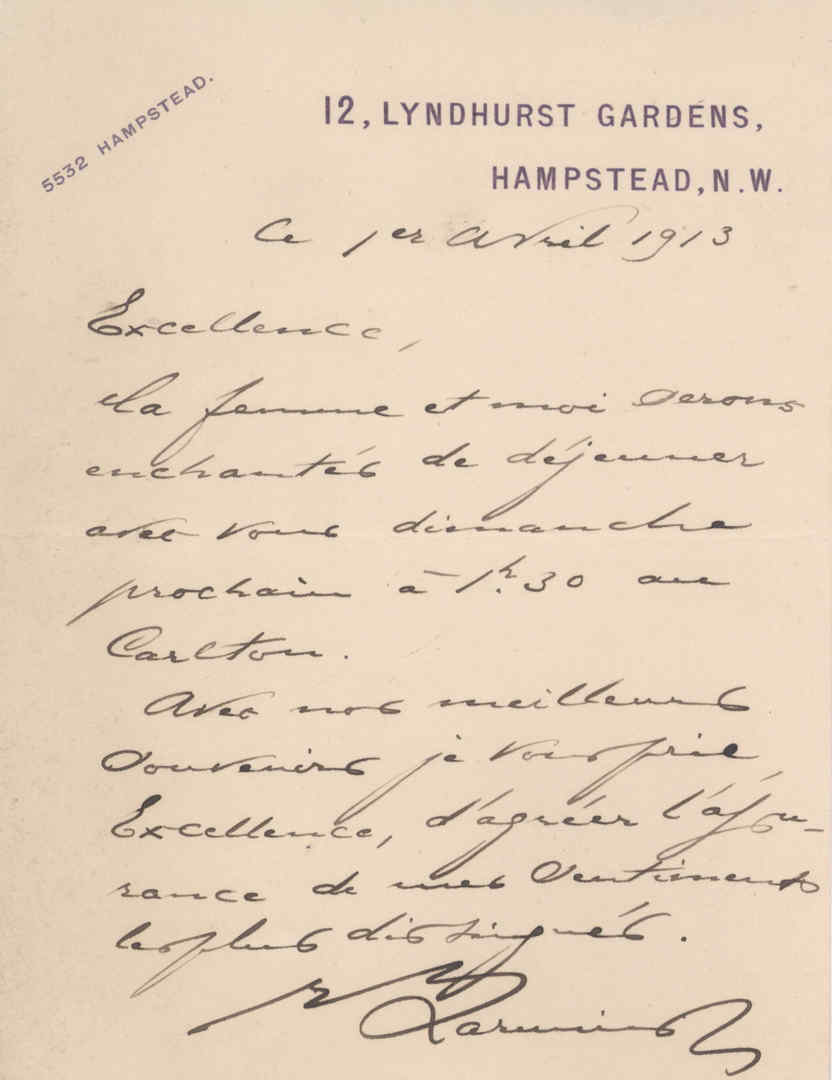 5532 HAMPSTEAD.
12, LYNDHURST GARDENS,
HAMPSTEAD, N.W.
Ce 1er Avril 1913
Excellence,
Ma femme et moi serons
enchantés de déjeuner
avec vous dimanche
prochain à 1h.30 au
Carlton.
Avec nos meilleurs
souvenirs je vous prie,
Excellence, d'agréer l'assu-
rance de mes sentiments
les plus distingués.